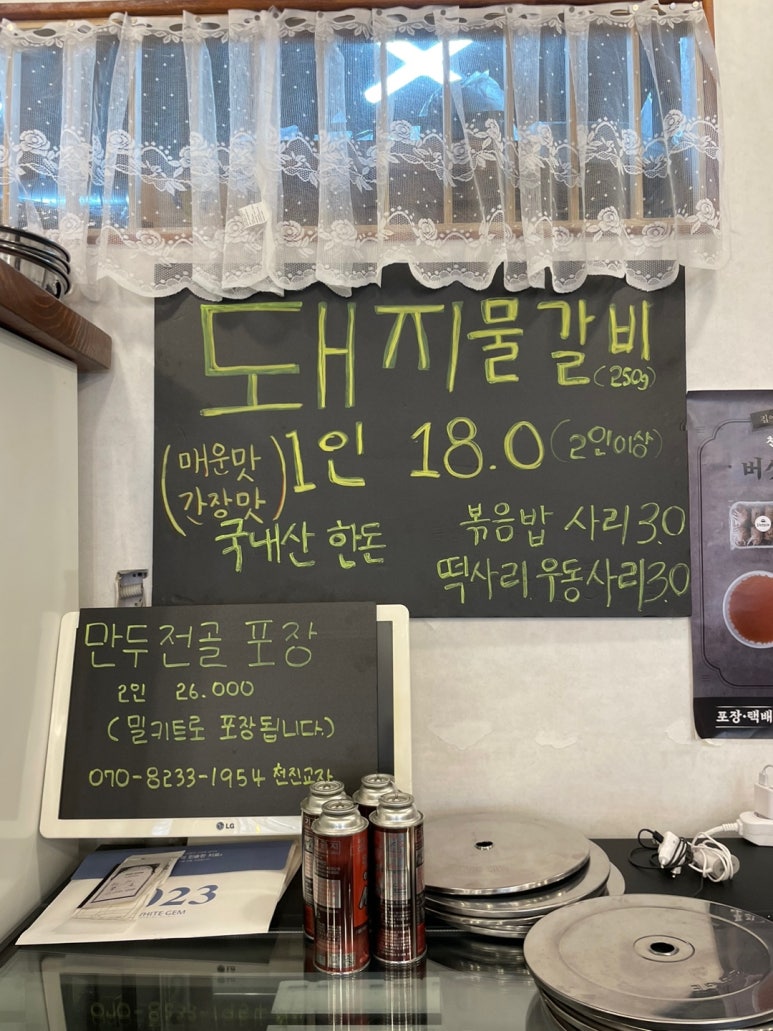 돼지물갈비
(250g)
(매운맛
간장맛)
1인 18.0 (2인이상)
국내산 한돈
볶음밥 사리 3.0
떡사리 우동사리 3.0
만두전골 포장
2인 26.000
(밀키트로 포장됩니다.)
070-8233-1954 천진교자
LG
023
WHITE GEM
포장·택배